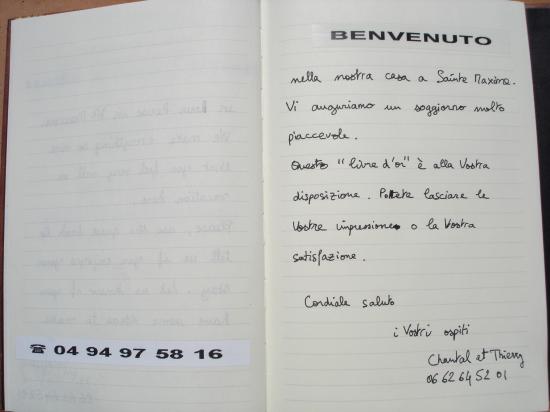 BENVENUTO
nella nostra casa a Sainte Maxime.
Vi auguriamo un soggiorno molto
piaccevole.
Questo "livre d'or" è alla Vostra
disposizione. Potete lasciare le
Vostre impressione o la Vostra
satisfazione.
Cordiale saluto
i Vostri ospiti
Chantal et Thierry
06 62 64 52 01
☎ 04 94 97 58 16